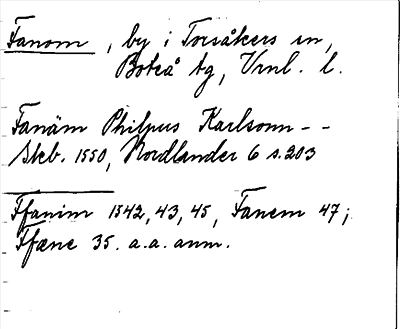 Fanom, by i Torsåkers sn,
Boteå tg, Vrnl. l.
Fanäm Philpus Karlsonn - -
Skb. 1550, Nordlander 6 s. 203
Ffanim 1542, 43, 45, Fanem 47;
Ffæne 35. a.a. anm.